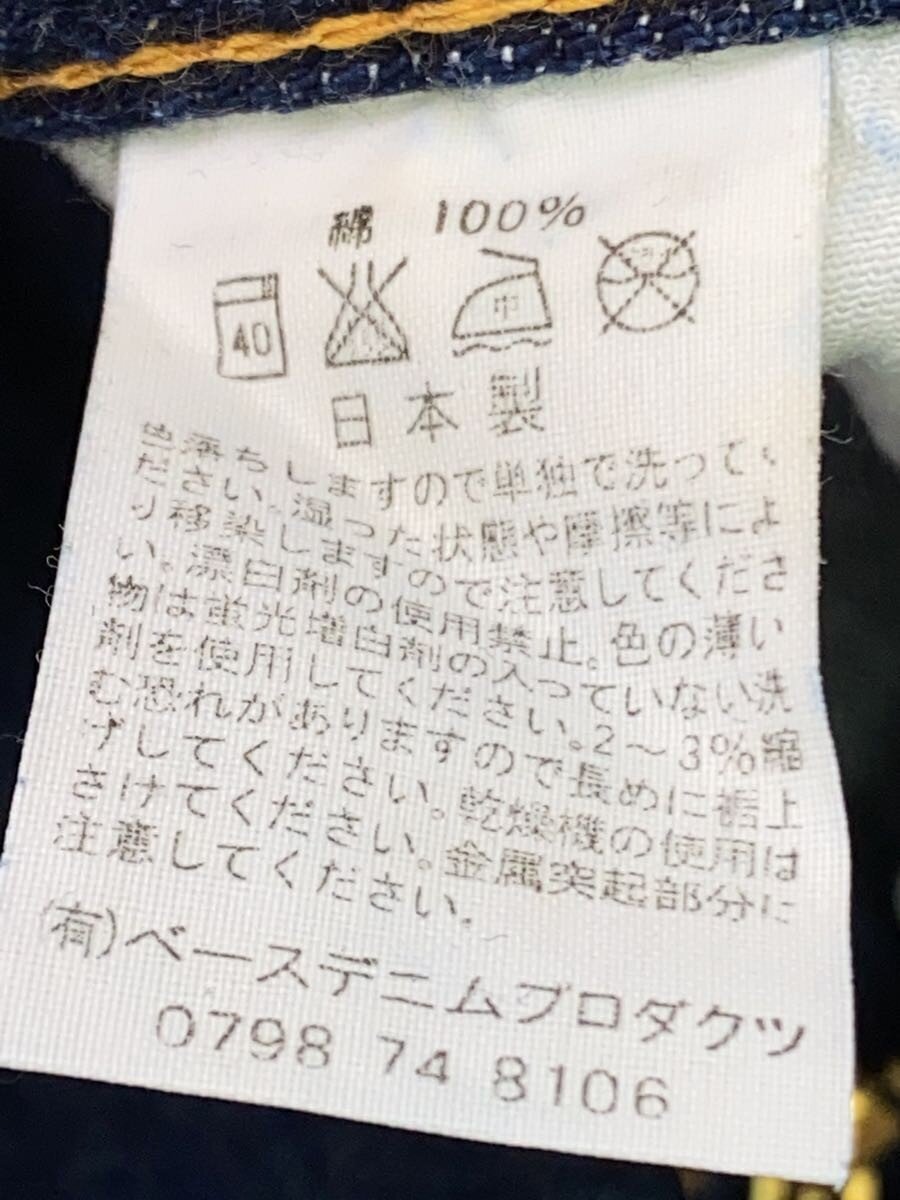 綿 100%
40 中
日本製
色落ちしますので単独で洗ってく
ださい。湿った状態や摩擦等によ
り移染しますので注意してくださ
い。漂白剤の使用禁止。色の薄い
物は蛍光増白剤の入っていない洗
剤を使用してください。2〜3%縮
む恐れがありますので長めに裾上
げしてください。乾燥機の使用は
さけてください。金属突起部分に
注意してください。
(有)ベースデニムプロダクツ
0798 74 8106